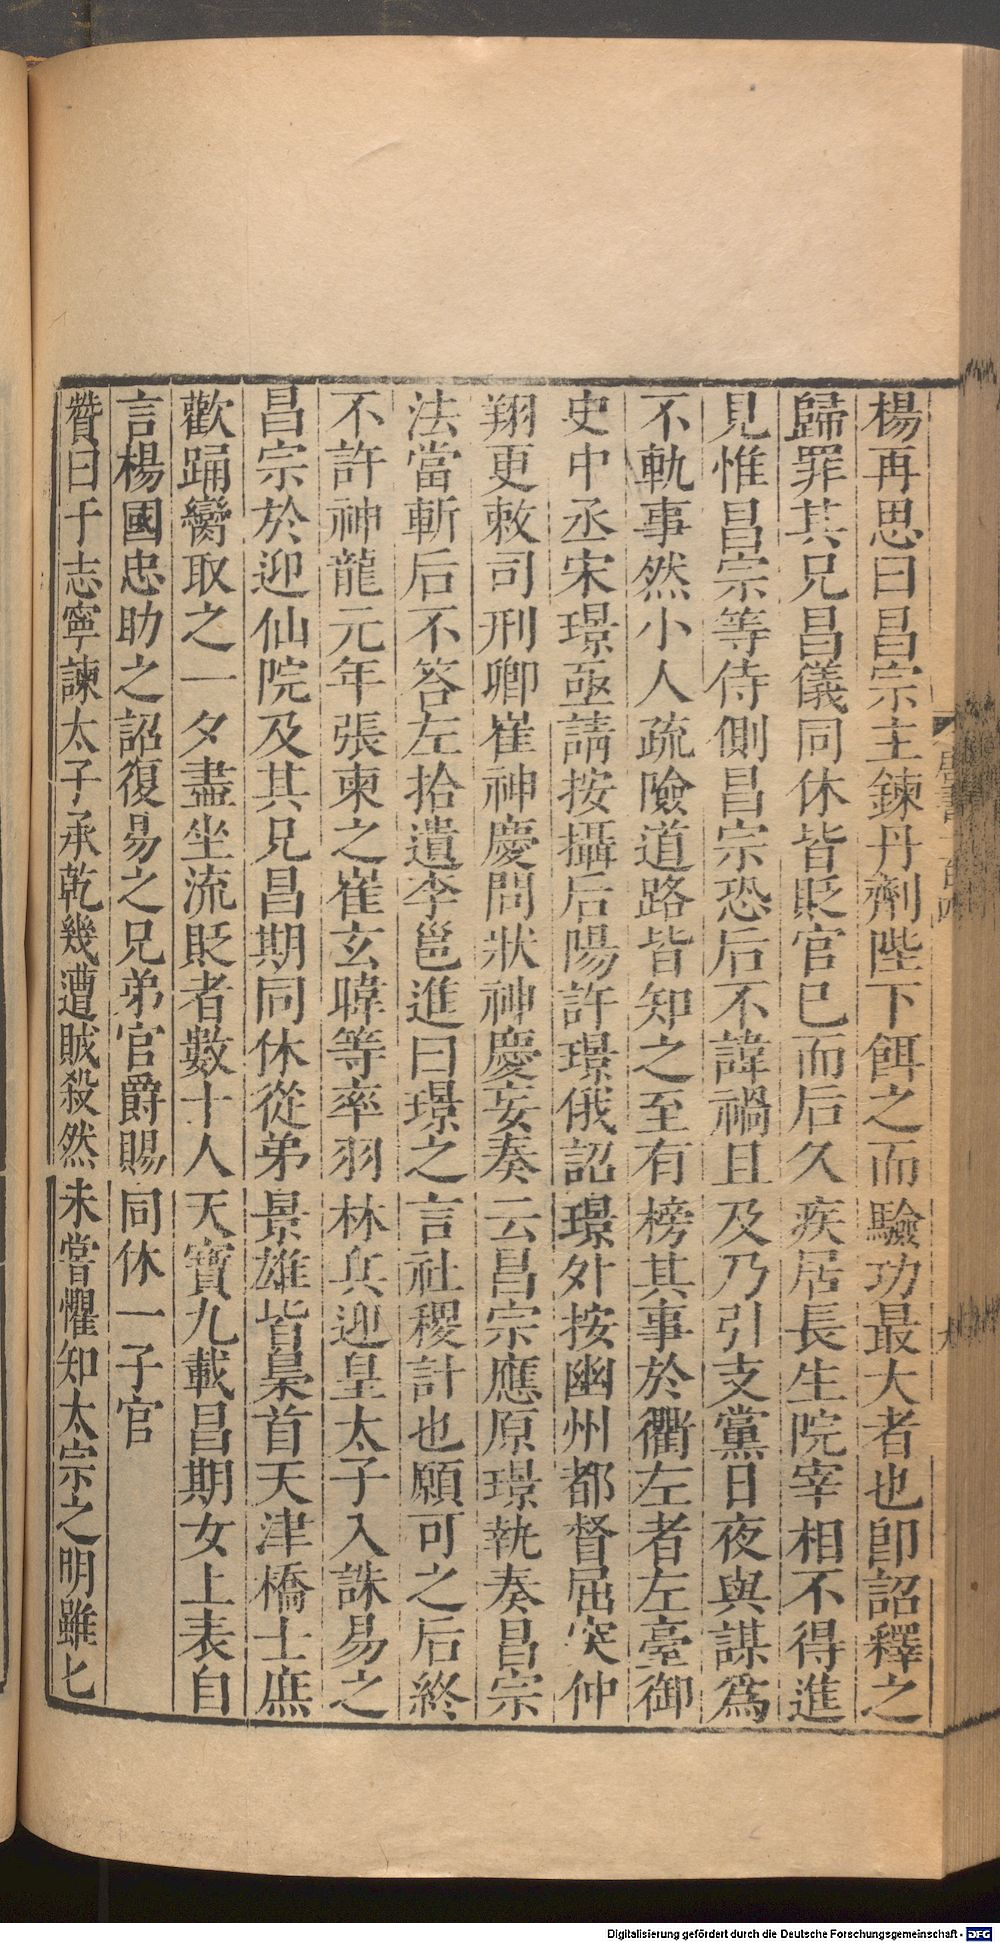 楊再思曰昌宗主鍊丹劑陛下餌之而驗功最大者也卽詔釋之
歸罪其兄昌儀同休皆貶官已而后久疾居長生院宰相不得進
見惟昌宗等侍側昌宗恐后不諱禍且及乃引支黨日夜與謀爲
不軌事然小人疏險道路皆知之至有榜其事於衢左者左臺御
史中丞宋璟亟請按攝后陽許璟俄詔璟外按幽州都督屈突仲
翔更敕司刑卿崔神慶問狀神慶妄奏云昌宗應原璟執奏昌宗
法當斬后不答左拾遺李邕進曰璟之言社稷計也願可之后終
不許神龍元年張柬之崔玄暐等率羽林兵迎皇太子入誅易之
昌宗於迎仙院及其兄昌期同休從弟景雄皆梟首天津橋士庶
歡踊臠取之一夕盡坐流貶者數十人天寶九載昌期女上表自
言楊國忠助之詔復易之兄弟官爵賜同休一子官
贊曰于志寧諫太子承乾幾遭賊殺然未嘗懼知太宗之明雖匕
唐書一百四
Digitalisierung gefördert durch die Deutsche Forschungsgemeinschaft - DFG